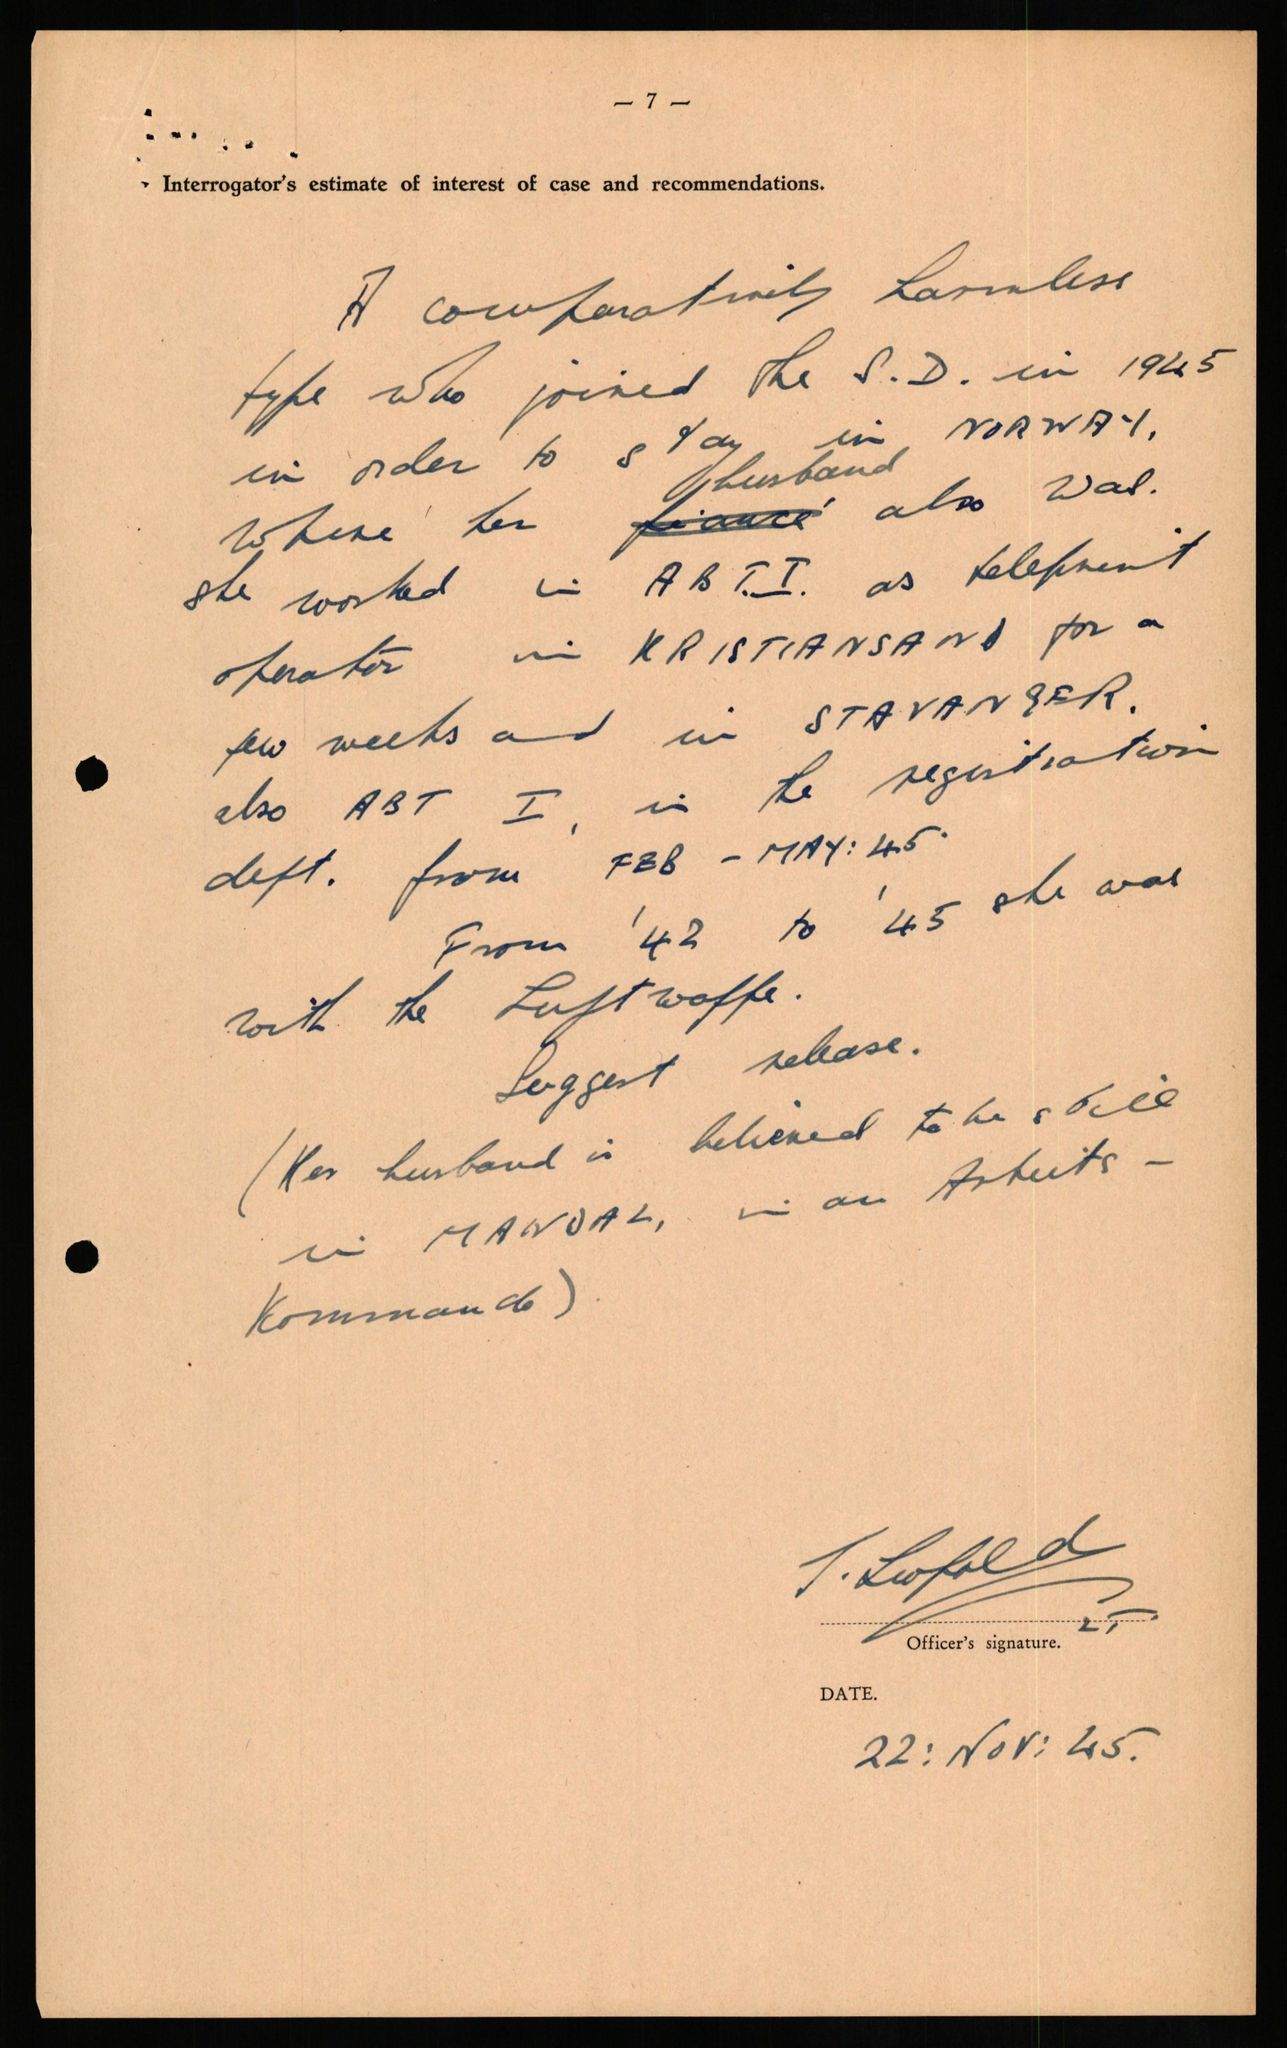 — 7 —
Interrogator's estimate of interest of case and recommendations.
A comparatively harmless
type who joined the S.D. in 1945
in order to stay in NORWAY,
husband
where her fiancé also was.
she worked in ABT.I. as teleprint
operator in KRISTIANSAND for a
few weeks and in STAVANGER,
also ABT I, in the registration
dept. from FEB - MAY: 45.
From '42 to '45 she was
with the Luftwaffe.
Suggest release.
(Her husband is believed to be still
in MANDAL, in an Arbeits-
Kommando)
Leopold
LT.
Officer's signature.
DATE.
22: NOV: 45.